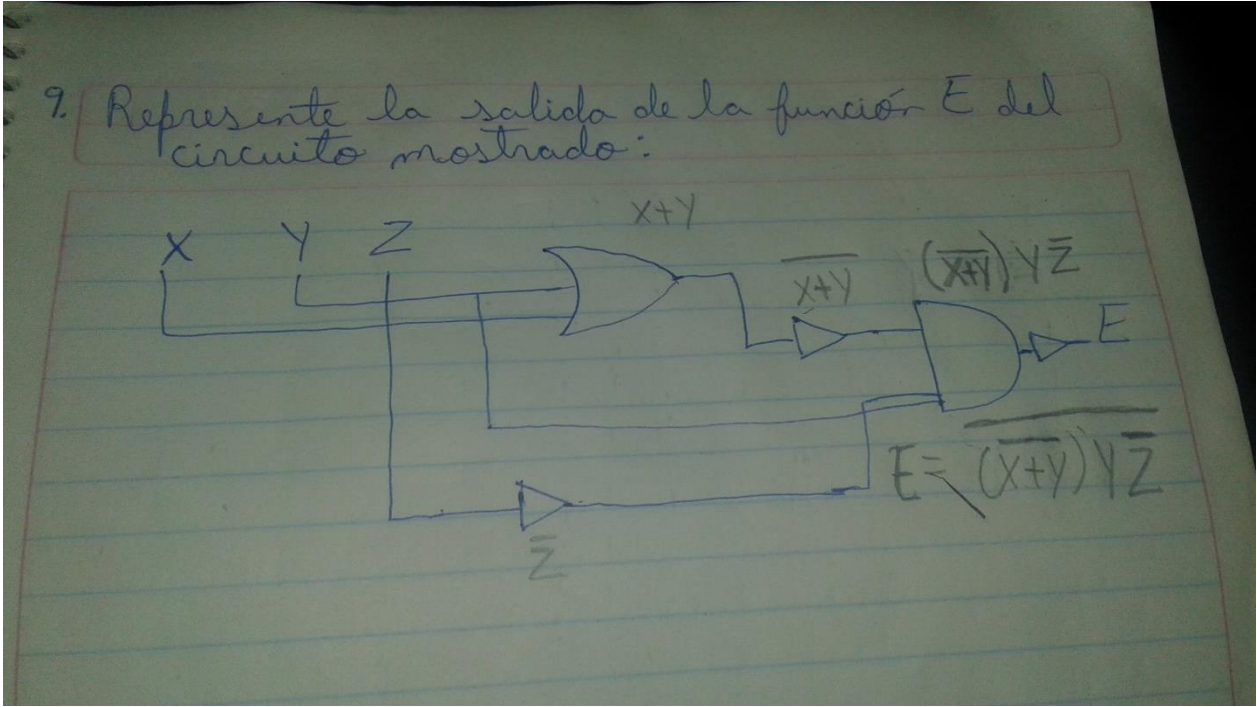 9. Represente la salida de la función E del
circuito mostrado:
X+Y
X Y Z
X̅+̅Y̅
(X̅+̅Y̅)YZ̅
E
E= (̅X̅+̅Y̅)̅ ̅Y̅Z̿
Z̅